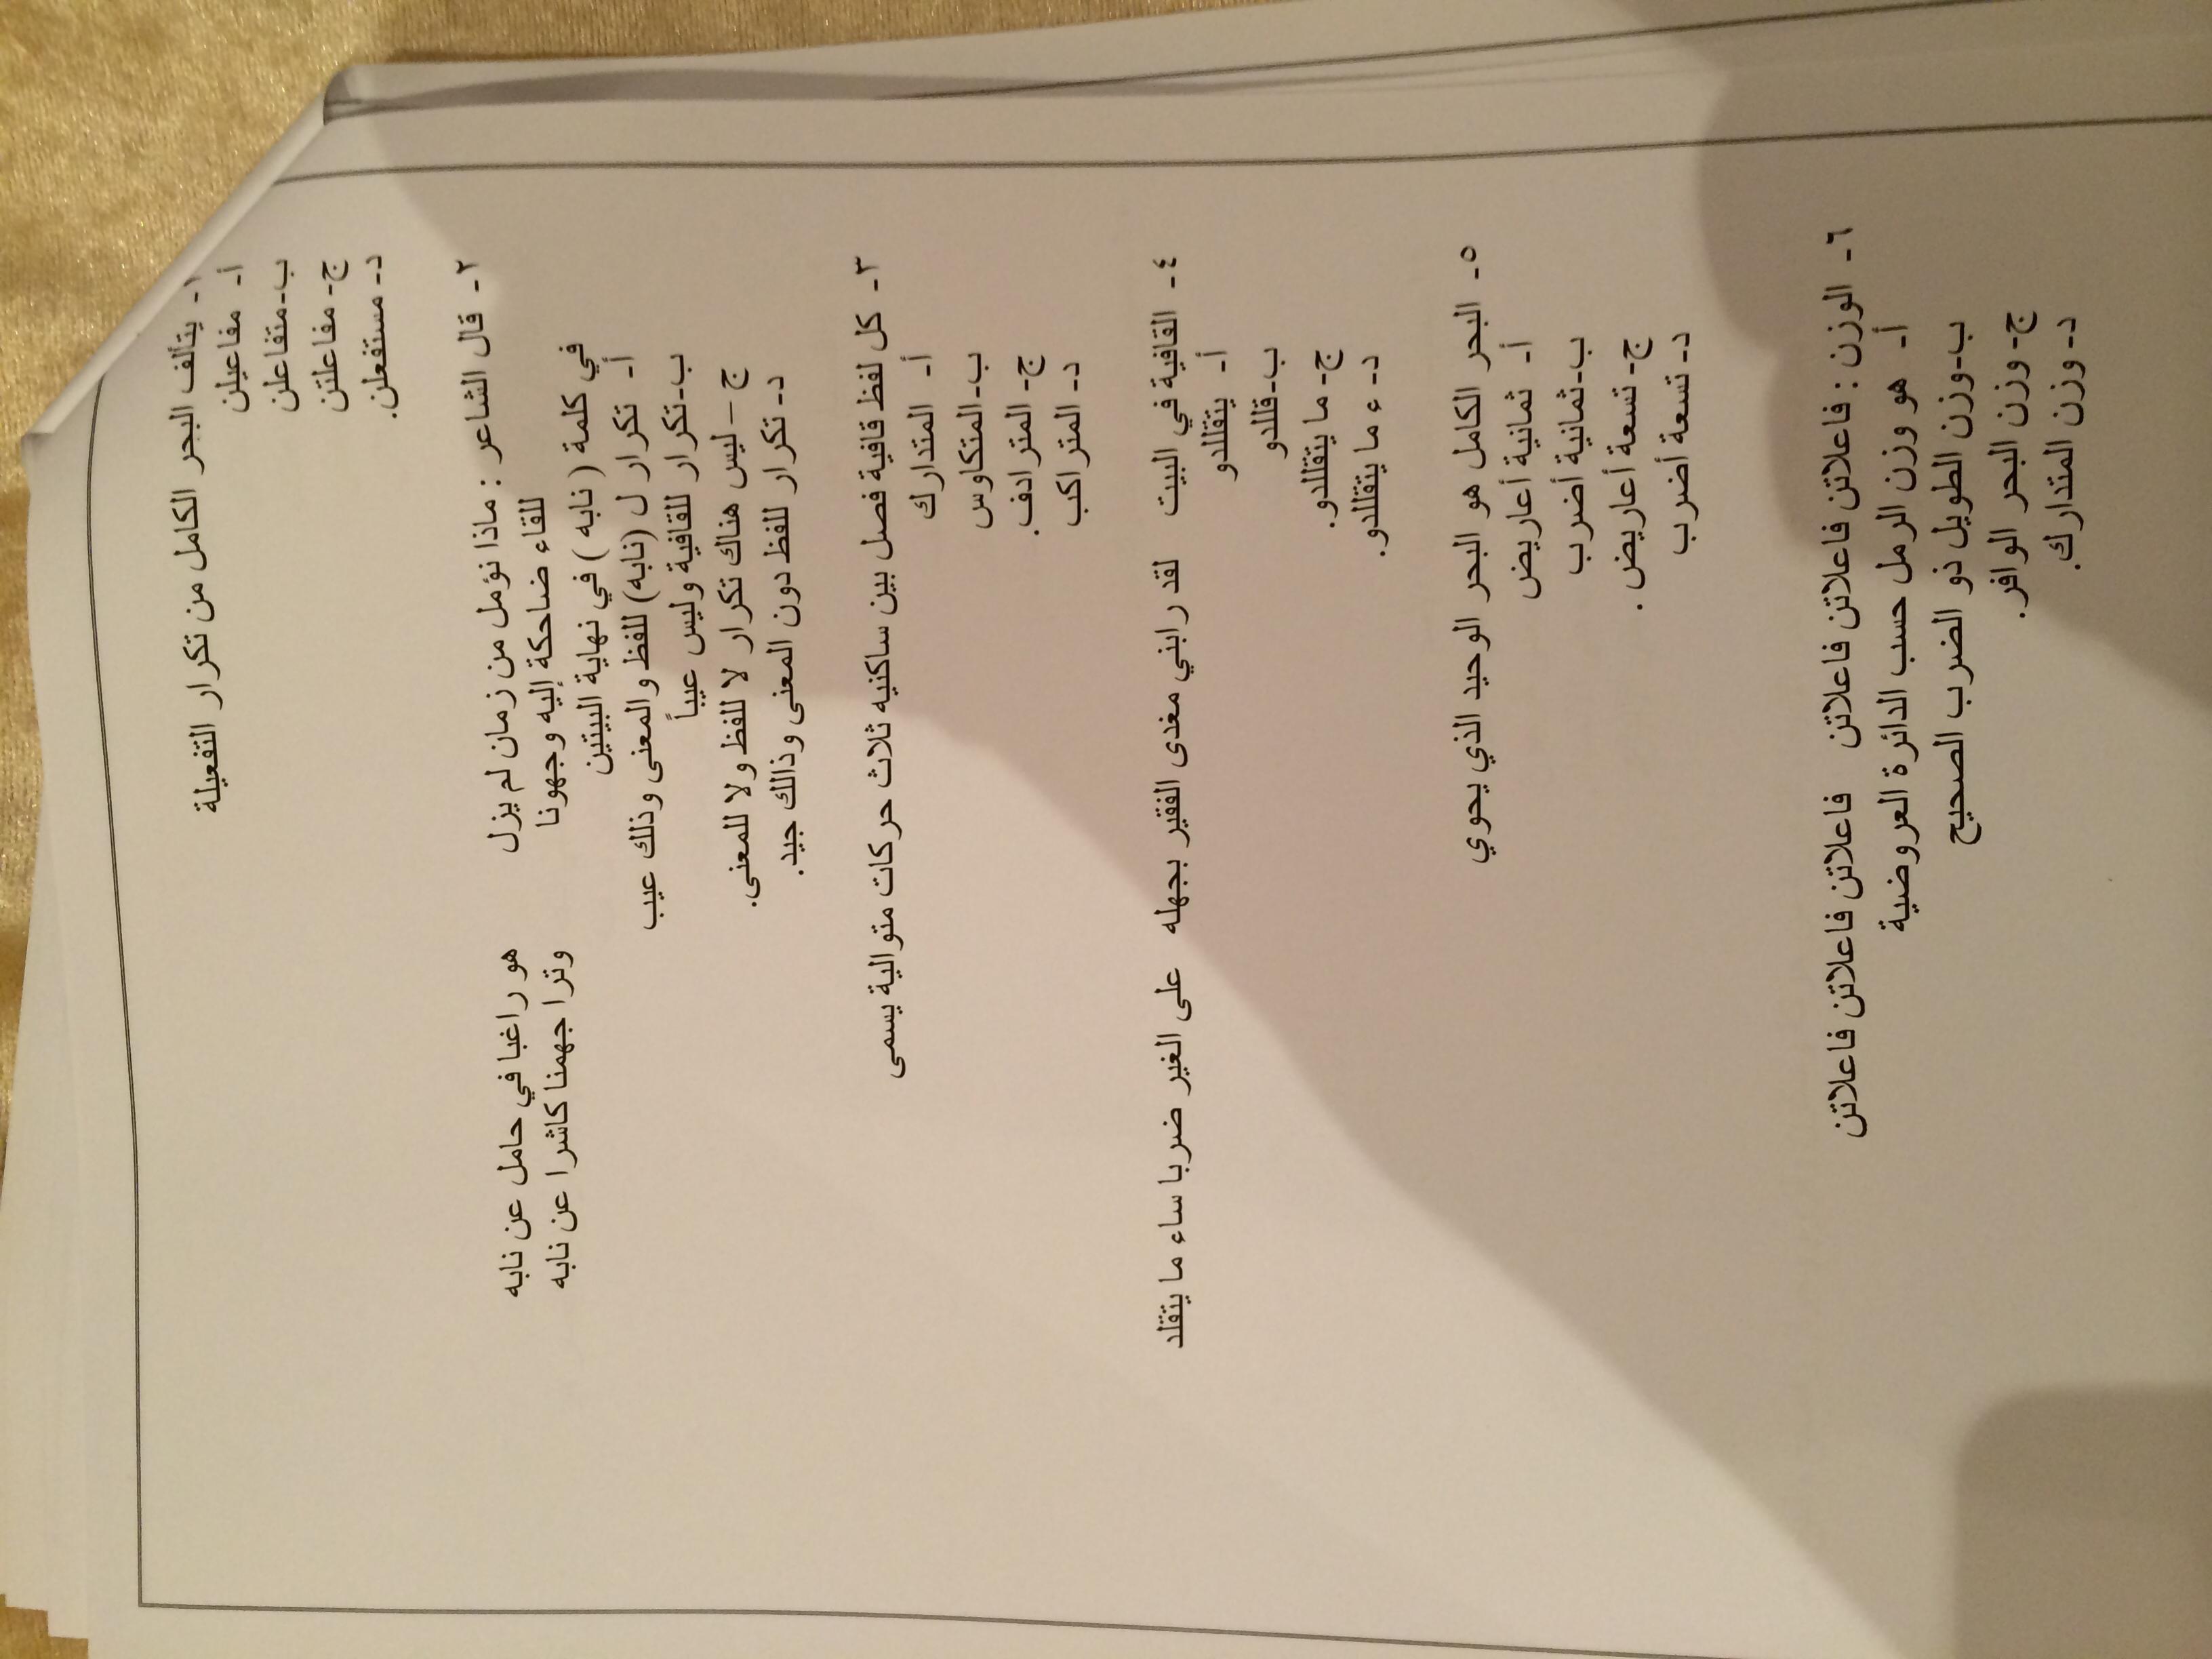 ١- يتألف البحر الكامل من تكرار التفعيلة
أ- مفاعيلن
ب- متفاعلن
ج- مفاعلتن
د- مستفعلن.
٢- قال الشاعر : ماذا نؤمل من زمان لم يزل هو راغبا في حامل عن نابه
للقاء ضاحكة إليه وجهونا وترا جهمنا كاشرا عن نابه
في كلمة ( نابه ) في نهاية البيتين
أ- تكرار ل (نابه) للفظ والمعنى وذلك عيب
ب- تكرار للقافية وليس عيباً
ج – ليس هناك تكرار لا للفظ ولا للمعنى.
د- تكرار للفظ دون المعنى وذالك جيد.
٣- كل لفظ قافية فصل بين ساكنيه ثلاث حركات متوالية يسمى
أ- المتدارك
ب- المتكاوس
ج- المترادف.
د- المتراكب
٤- القافية في البيت لقد رابني مغدى الفقير بجهله على الغير ضربا ساء ما يتقلد
أ- يتقللدو
ب- قللدو
ج- ما يتقللدو.
د- ء ما يتقللدو.
٥- البحر الكامل هو البحر الوحيد الذي يحوي
أ- ثمانية أعاريض
ب- ثمانية أضرب
ج- تسعة أعاريض .
د- تسعة أضرب
٦- الوزن : فاعلاتن فاعلاتن فاعلاتن فاعلاتن فاعلاتن فاعلاتن
أ- هو وزن الرمل حسب الدائرة العروضية
ب- وزن الطويل ذو الضرب الصحيح
ج- وزن البحر الوافر.
د- وزن المتدارك.